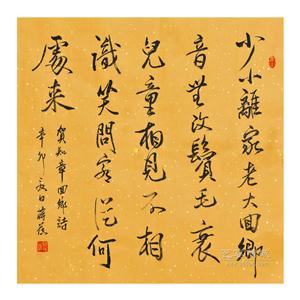 少小離家老大回鄉
音無改鬢毛衰
兒童相見不相
識笑問客從何
處来
賀知章回鄉詩
辛卯